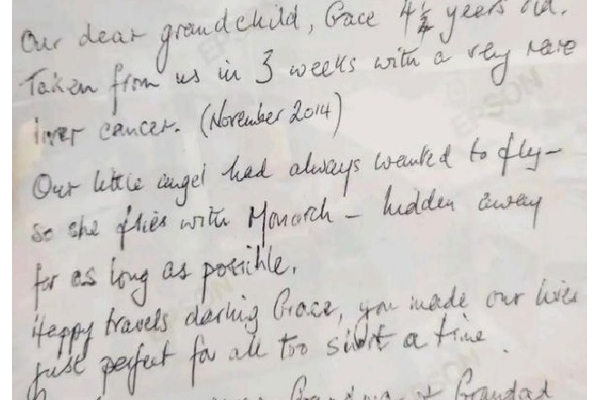 Our dear grandchild, Grace 4½ years old.
Taken from us in 3 weeks with a very rare
liver cancer. (November 2014)
Our little angel had always wanted to fly –
so she flies with Monarch – hidden away
for as long as possible.
Happy travels darling Grace, you made our lives
just perfect for all too short a time.
Grandma + Grandad